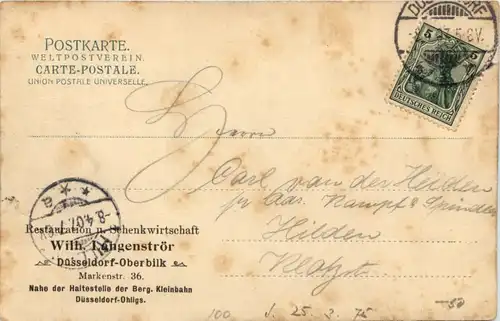 POSTKARTE.
WELTPOSTVEREIN.
CARTE-POSTALE.
UNION POSTALE UNIVERSELLE.
5 5
DEUTSCHES REICH
Herrn
Carl van der Hilden
Kampf & Spindler
Hilden
8.4.07.
Restauration u. Schenkwirtschaft
Wilh. Langenströr
Düsseldorf-Oberbilk
Markenstr. 36.
Nahe der Haltestelle der Berg. Kleinbahn
Düsseldorf-Ohligs.
100 1. 25. 3. 75 -50